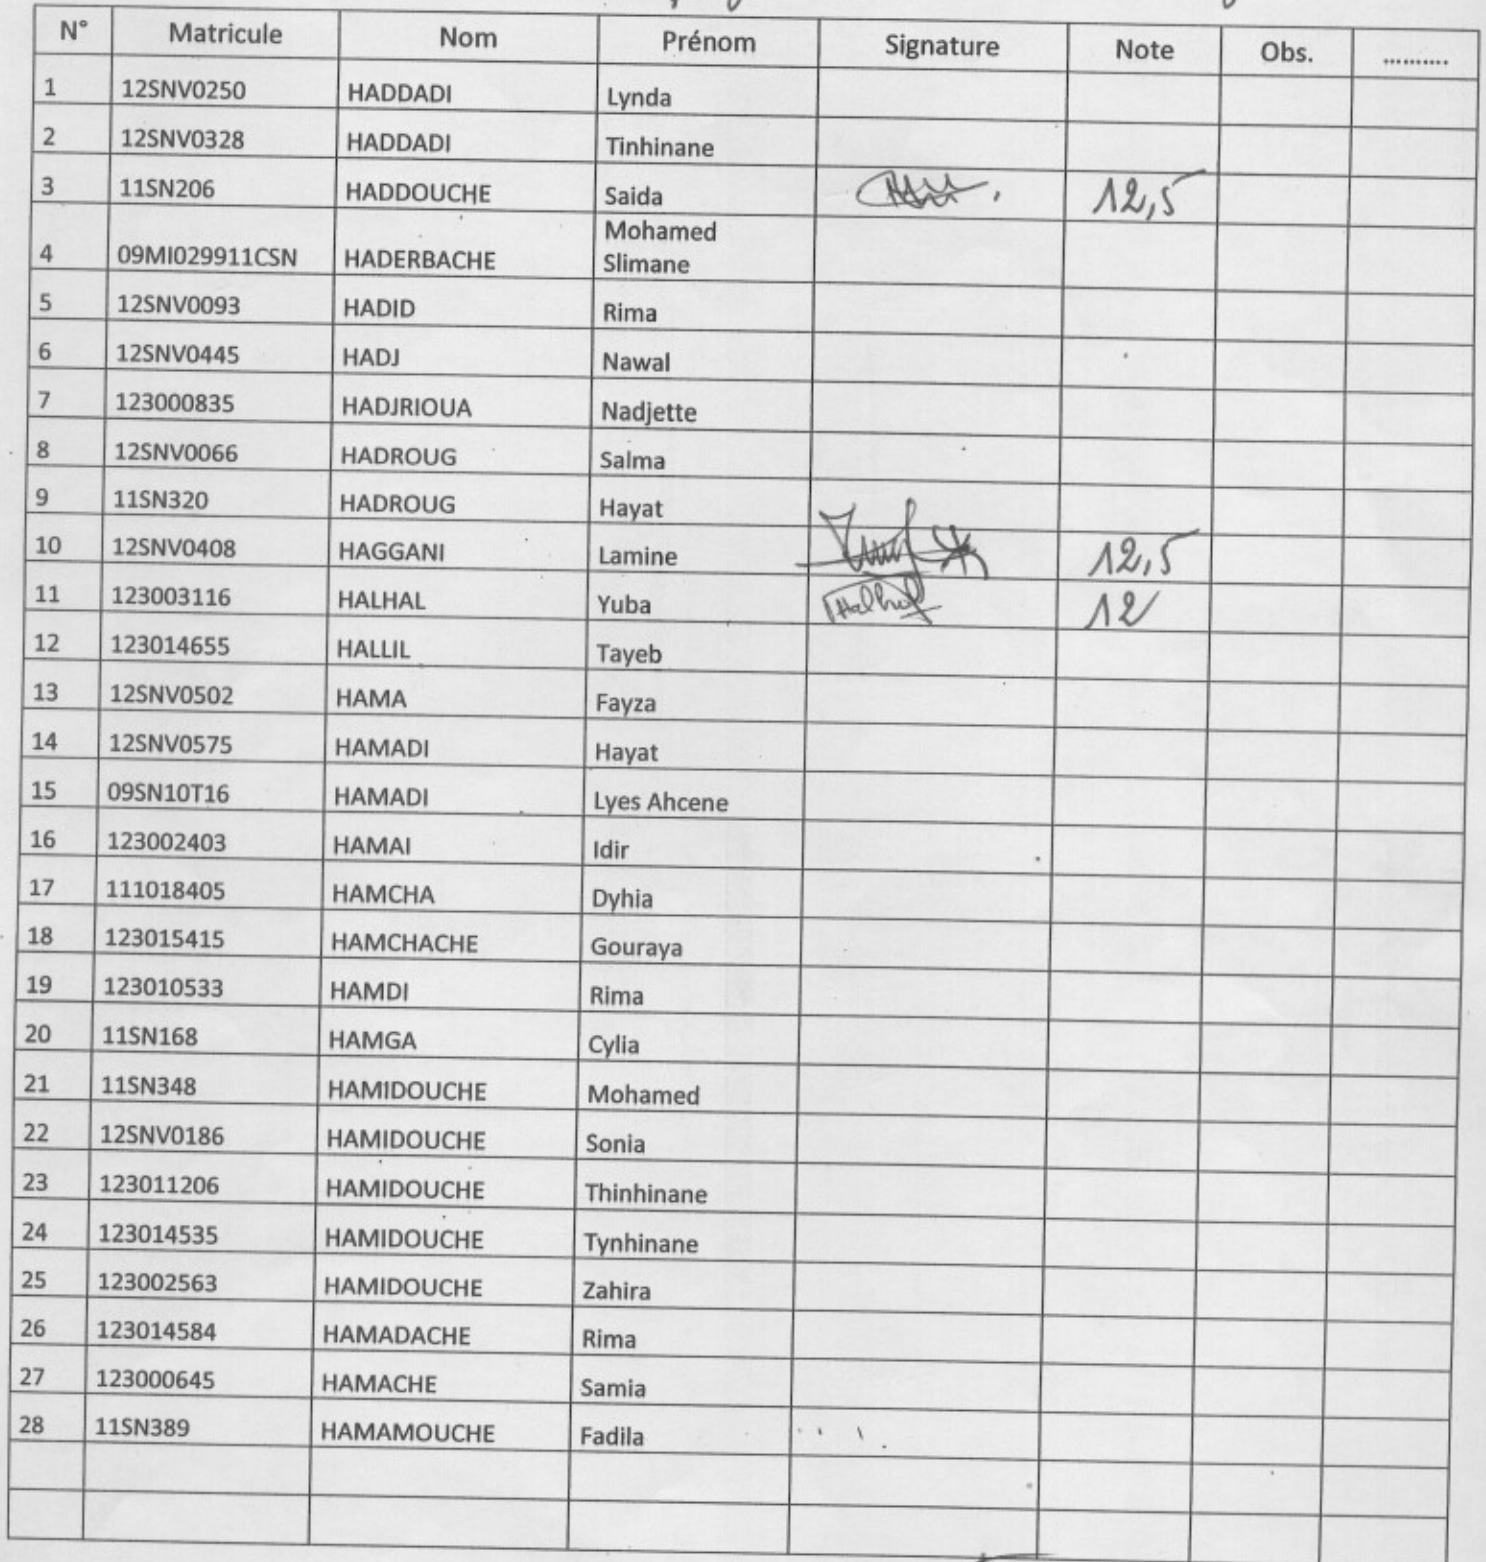 N° Matricule Nom Prénom Signature Note Obs. ..........
1 12SNV0250 HADDADI Lynda
2 12SNV0328 HADDADI Tinhinane
3 11SN206 HADDOUCHE Saida 12,5
4 09MI029911CSN HADERBACHE Mohamed
Slimane
5 12SNV0093 HADID Rima
6 12SNV0445 HADJ Nawal
7 123000835 HADJRIOUA Nadjette
8 12SNV0066 HADROUG Salma
9 11SN320 HADROUG Hayat
10 12SNV0408 HAGGANI Lamine 12,5
11 123003116 HALHAL Yuba Halhal 12
12 123014655 HALLIL Tayeb
13 12SNV0502 HAMA Fayza
14 12SNV0575 HAMADI Hayat
15 09SN10T16 HAMADI Lyes Ahcene
16 123002403 HAMAI Idir
17 111018405 HAMCHA Dyhia
18 123015415 HAMCHACHE Gouraya
19 123010533 HAMDI Rima
20 11SN168 HAMGA Cylia
21 11SN348 HAMIDOUCHE Mohamed
22 12SNV0186 HAMIDOUCHE Sonia
23 123011206 HAMIDOUCHE Thinhinane
24 123014535 HAMIDOUCHE Tynhinane
25 123002563 HAMIDOUCHE Zahira
26 123014584 HAMADACHE Rima
27 123000645 HAMACHE Samia
28 11SN389 HAMAMOUCHE Fadila